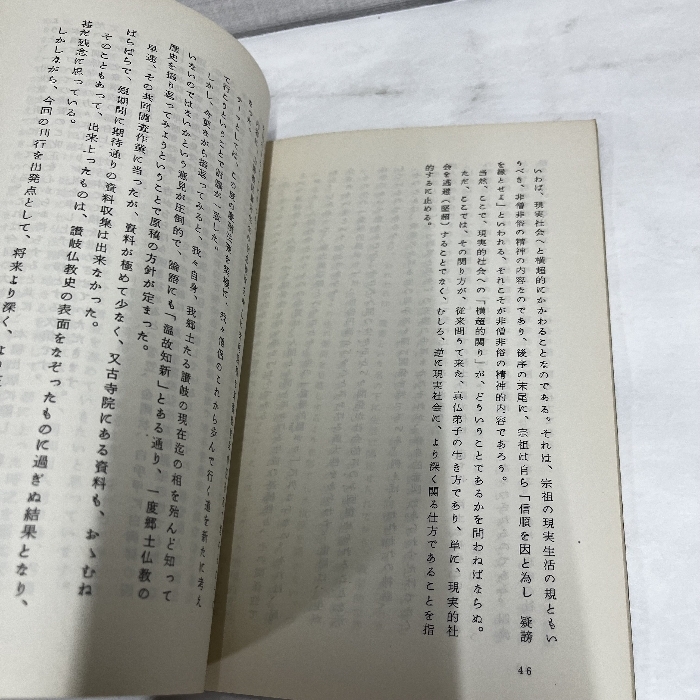 いわば、現実社会へと横超的にかかわることなのである。それは、宗祖の現実生活の規ともい
うべき、非僧非俗の精神の内容なのであり、後序の末尾に、宗祖は自ら「信順を因と為し　疑謗
を縁とせよ」といわれる、それこそが非僧非俗の精神的内容であろう。
当然、ここで、現実的社会への「横超的関り」が、どういうことであるかを問わねばならぬ。
ただ、ここでは、その関り方が、従来問うて来た、真仏弟子の生き方であり、単に、現実的社
会を逃避（竪超）することでなく、むしろ、逆に現実社会に、より深く関る仕方であることを指
的するに止める。
46
我々僧侶のこれから歩んで行く道を新たに考え
て行こうということで
しかし、今更ながら振返ってみると、我々自身、我郷土たる讃岐の現在迄の相を殆んど知って
いないのではないかという意見が圧倒的で、論語にも「温故知新」とある通り、一度郷土仏教の
歴史を振り返ってみようということで原稿の方針が定まった。
早速、その共同調査作業に当ったが、資料が極めて少なく、又古寺院にある資料も、おゝむね
ばらばらで、短期間に期待通りの資料収集は出来なかった。
そのこともあって、出来上ったものは、讃岐仏教史の表面をなぞったものに過ぎぬ結果となり、
甚だ残念に思っている。
しかしながら、今回の刊行を出発点として、将来より深く、